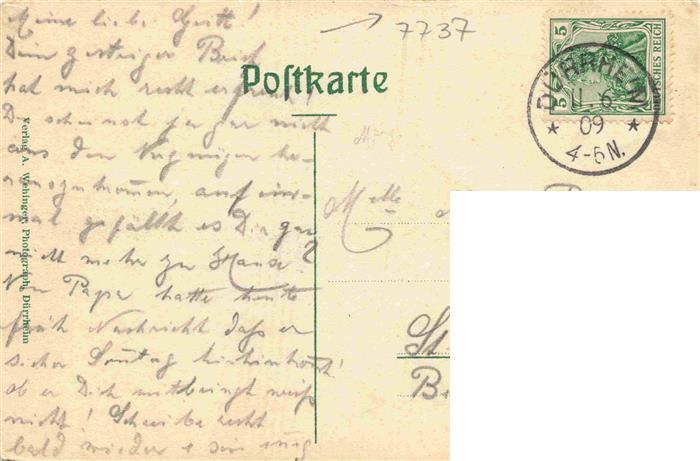 Meine liebe Gertt!
Dein gestriger Brief
hat mich recht erfreut!
Du scheinst ja gar nicht
aus den Vergnügen her-
auszukommen, auf ein-
mal gefällt es Dir gar
nicht mehr zu Hause?
Von Papa hatte heute
früh Nachricht daß er
sicher Sonntag hierherkommt!
ob er Dich mitbringt weiß
nicht! Schreibe recht
bald wieder & sei innig
Verlag A. Wehinger, Photograph, Dürrheim
7737
Postkarte
5 5
DEUTSCHES REICH
DÜRRHEIM
11 6
* 09 *
4-5N.
Melle
St
Be